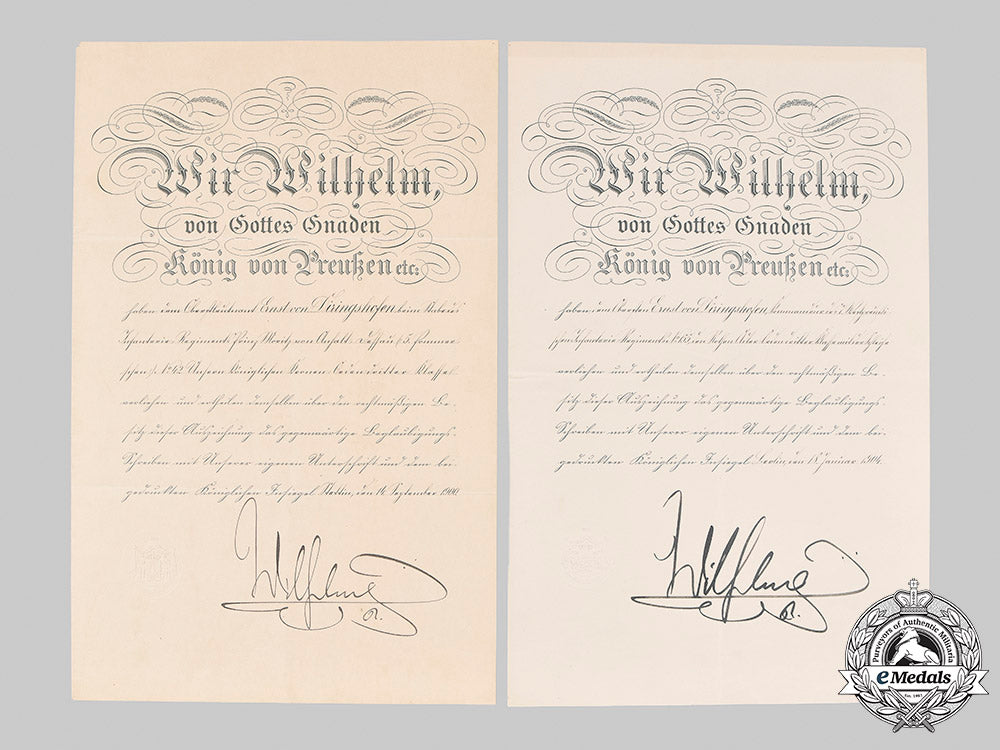 Wir Wilhelm,
von Gottes Gnaden
König von Preußen etc:
haben dem Oberstleutnant Ernst von Diringshofen beim Stabe des
Infanterie Regiments Prinz Moritz von Anhalt-Dessau (5. Pommer-
schen) No 42 Unsern Königlichen Kronen-Orden dritter Klasse
verliehen und ertheilen demselben über den rechtmäßigen Be-
sitz dieser Auszeichnung das gegenwärtige Beglaubigungs-
Schreiben mit Unserer eigenen Unterschrift und dem bei-
gedruckten Königlichen Insiegel Stettin, den 14 September 1900
Wilhelm
R.
Wir Wilhelm,
von Gottes Gnaden
König von Preußen etc:
haben dem Obersten Ernst von Diringshofen, Kommandeur
Infanterie Regiments den Rothen Adler-Orden dritter Klasse mit der Schleife
verliehen und ertheilen demselben über den rechtmäßigen Be-
sitz dieser Auszeichnung das gegenwärtige Beglaubigungs-
Schreiben mit Unserer eigenen Unterschrift und dem bei-
gedruckten Königlichen Insiegel Berlin, den 18 Januar 1904
Wilhelm
R.
Purveyors of Authentic Militaria
eMedals